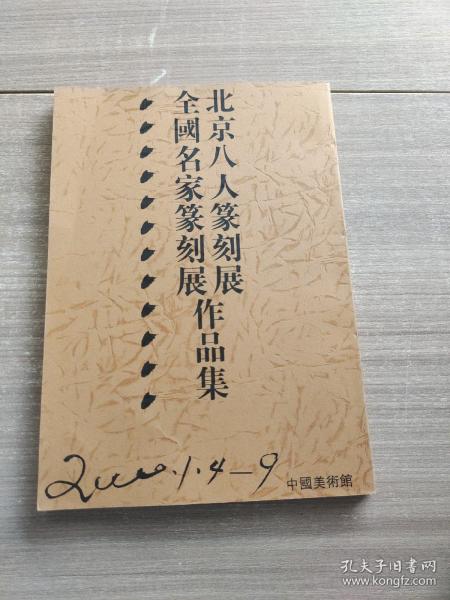 北京八人篆刻展
全國名家篆刻展
作品集
2000.1.4—9
中國美術館
孔夫子旧书网
www.kongfz.com